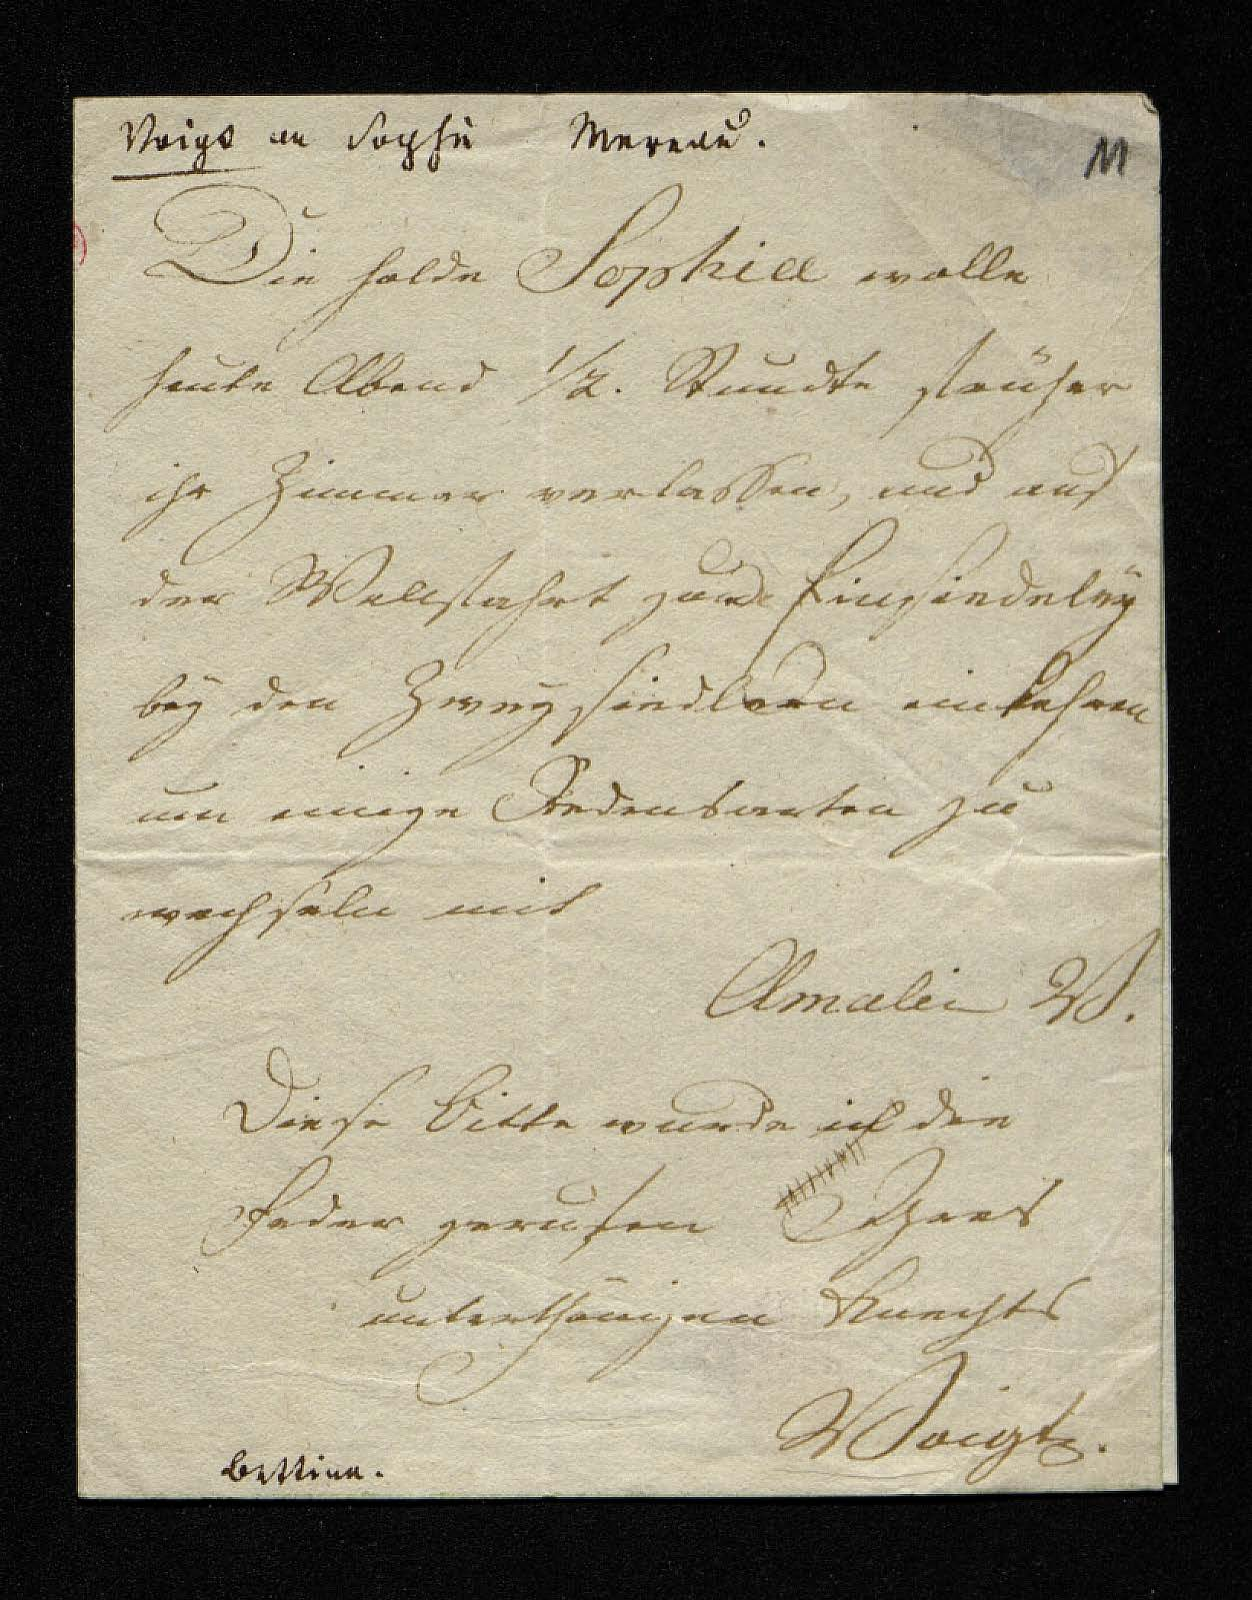 Voigt an Sophie Mereau.
M
Die holde Sophiee wolle
heute Abend 1/2. Stundte früher
ihr Zimmer verlassen, und auf
der Wallfahrt zur Einsiedeley
bey den Zweysiedlern einkehren
um einige Redensarten zu
wechseln mit
Amalie V.
Diese Bitte wurde in die
Feder gerufen Ihres
unterthänigen Knechts
Voigt.
Bettina.